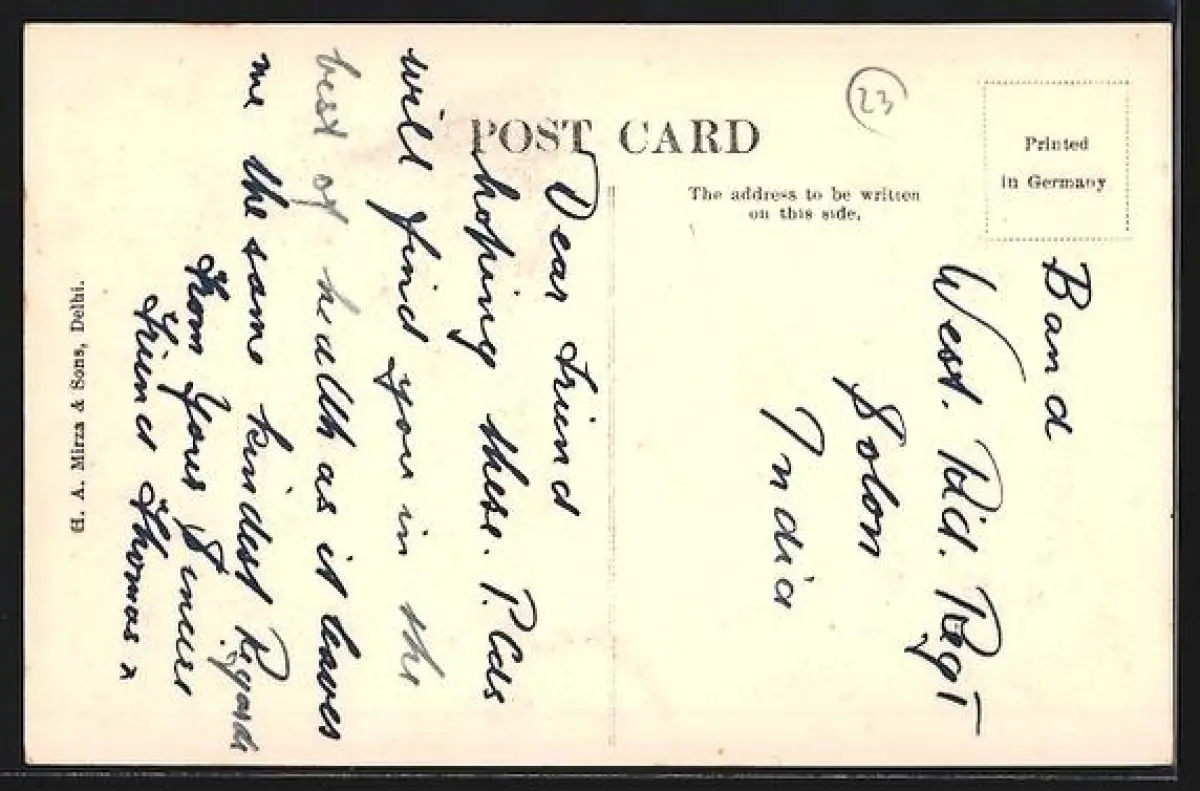 POST CARD
23
Printed
in Germany
The address to be written
on this side.
Dear Friend
hoping these. P.Cds
will find you in the
best of health as it leaves
me the same kindest Regards
From your Sincere
Friend Thomas x
Band
West. Rid. Regt
Solon
India
H. A. Mirza & Sons, Delhi.